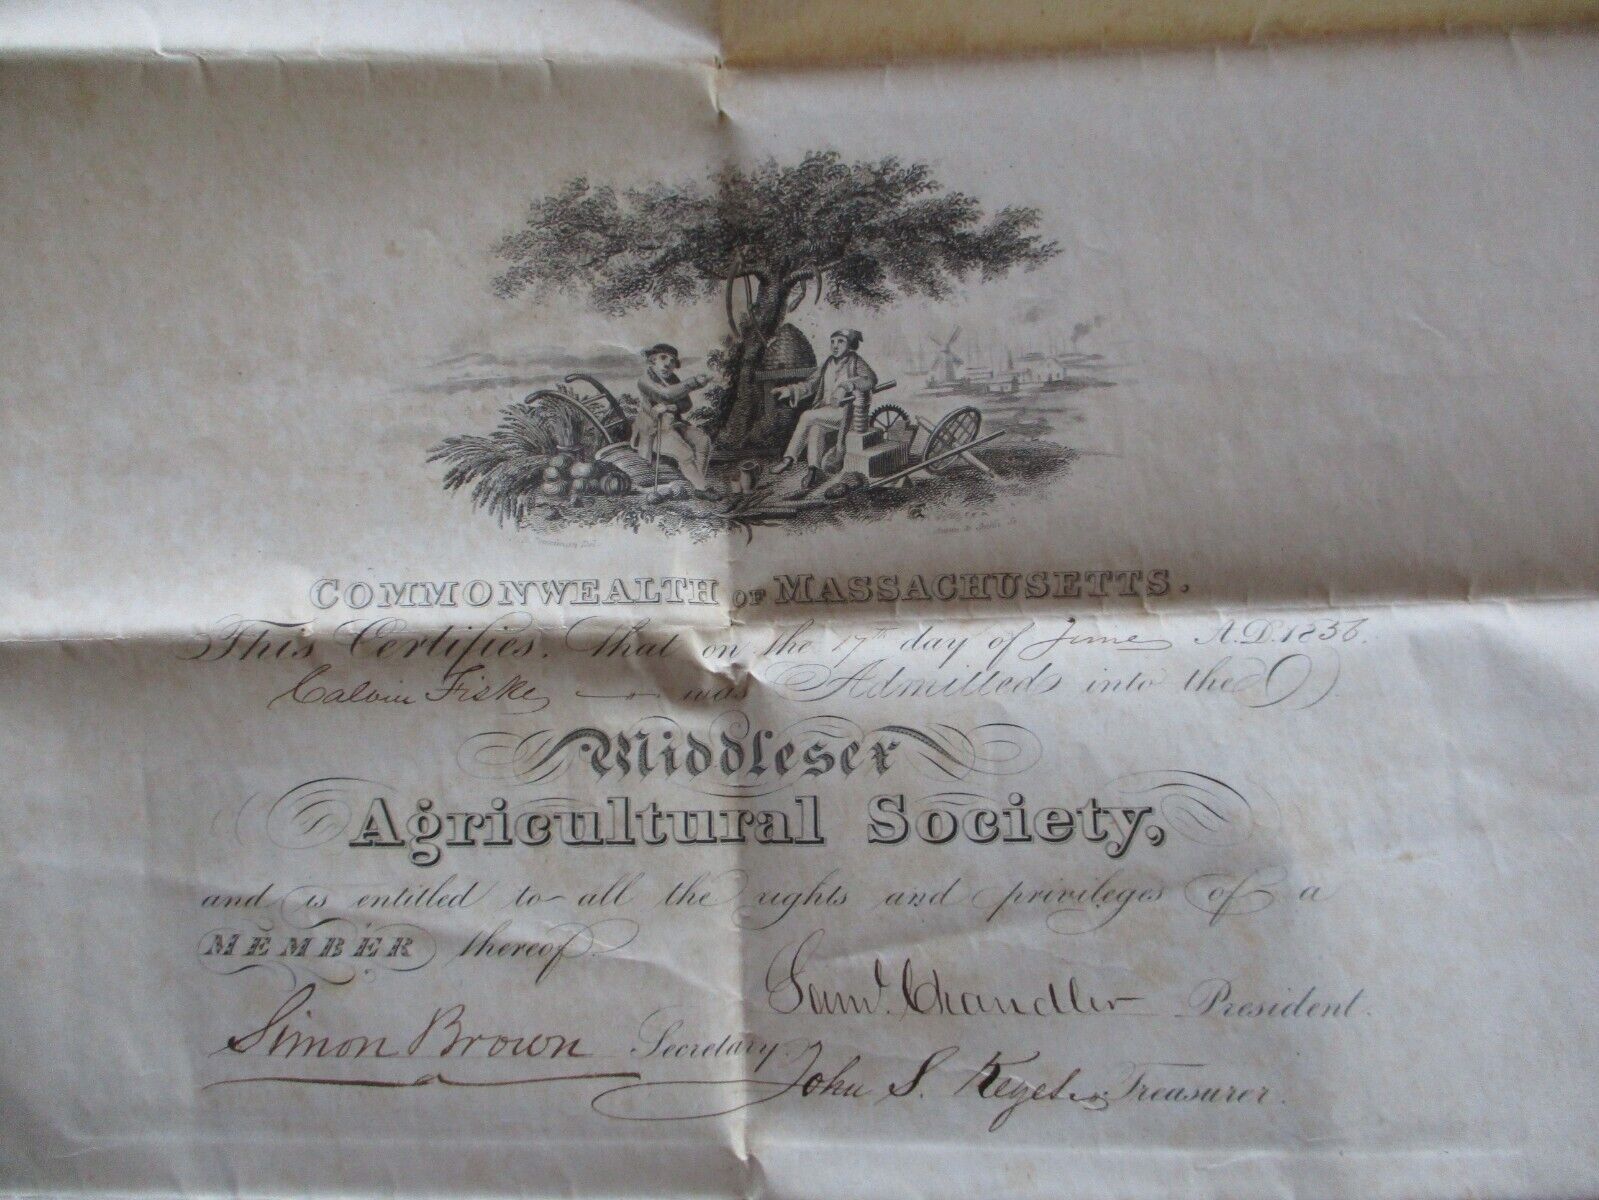 COMMONWEALTH OF MASSACHUSETTS.
This Certifies, that on the 17th day of June A.D. 1856.
Calvin Fiske was Admitted into the
Middlesex
Agricultural Society,
and is entitled to all the rights and privileges of a
MEMBER thereof.
Saml. Chandler President.
Simon Brown Secretary.
John S. Keyes Treasurer.